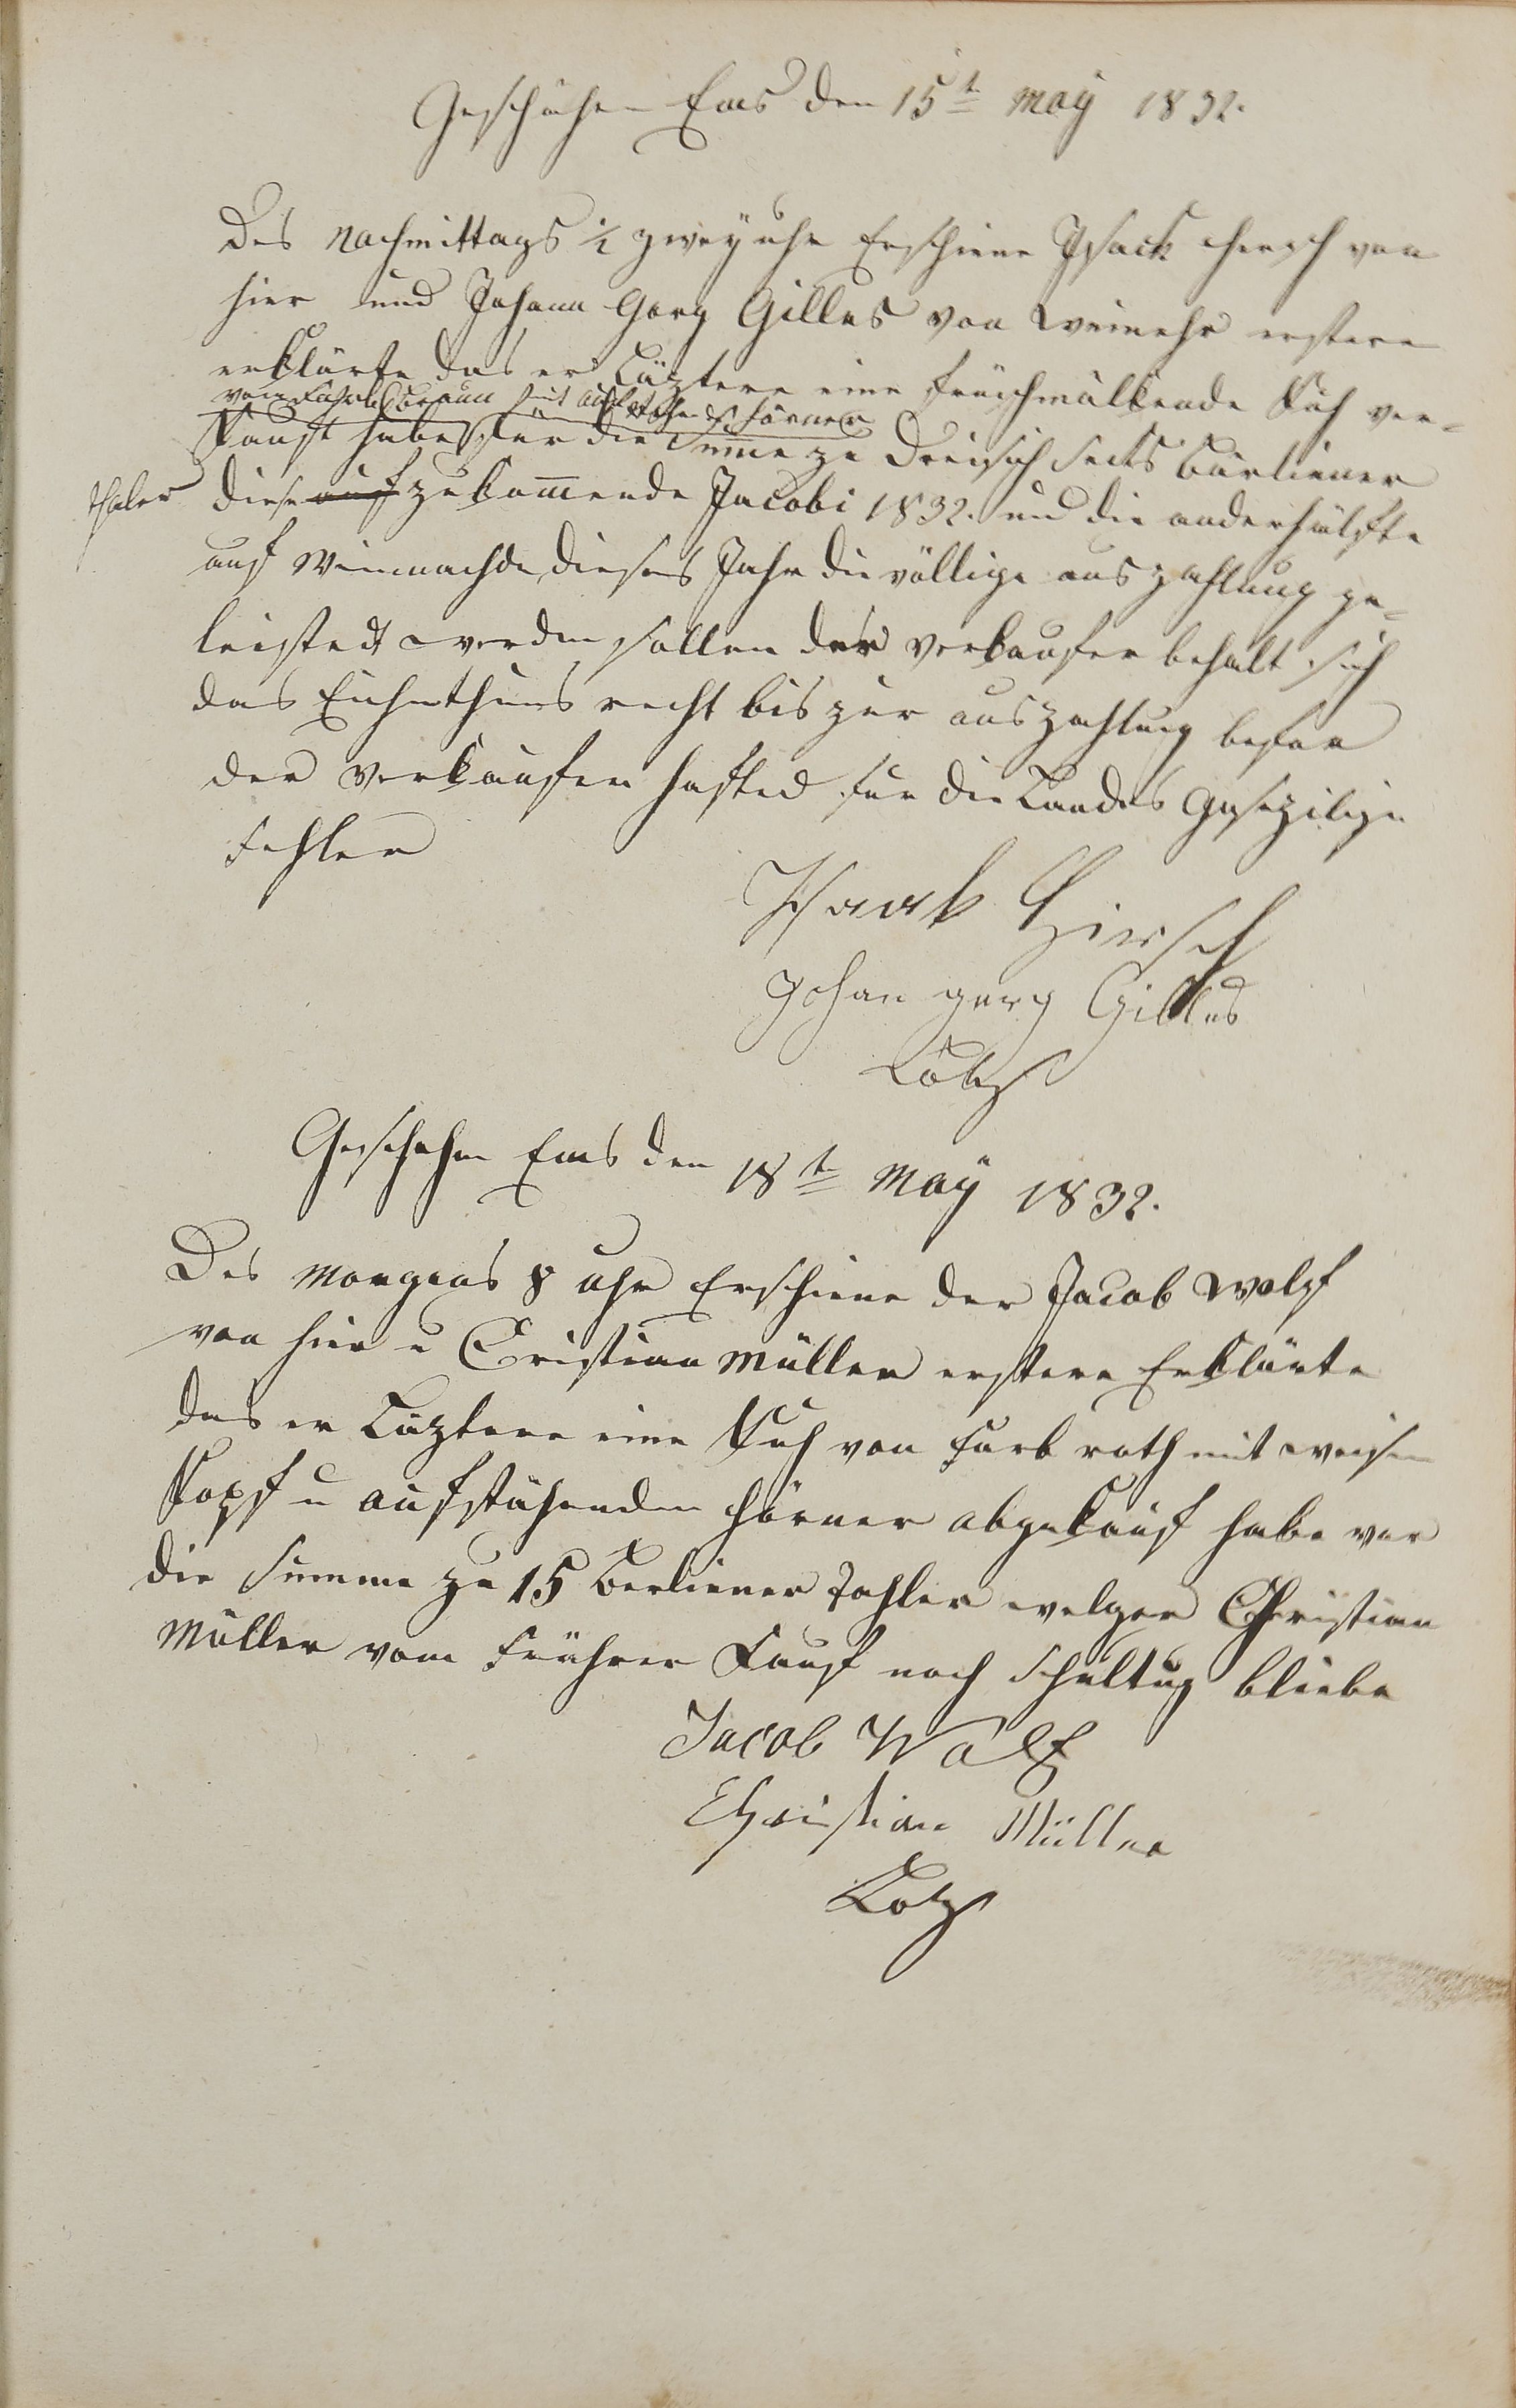 Geschähen Ems den 15t May 1832.
Des Nachmittags ½ zwey uhr Erschiene Isack Hersch von
hier und Johann Gorg Gilles von Weinehr erstere
erklärte das er Läztere eine früschmälkende Kuh ver=
vom Farb Braun mit aufstehende Hörner
kauft habe für die Sum̅e zu Dreisich secks Bärliener
thaler diese auf zukom̅ende Jacobi 1832. und die anderhälfte
auf Weinnachde dieses Jahr die völlige auszahlung ge=
leistedt werden sollen der verkaufer behalt sich
das Eichenthums recht bis zur auszahlung befor
der Verkäufer hafted für die Landes Gesezliche
Fehler
Isaak Hirsch
Johan gerg Gilles
Lotz
Geschehen Ems den 18t May 1832.
Des Morgens 8 uhr Erschiene der Jacob Wolf
von hier u Cristian Müller erstere Erklärte
das er Läztere eine Kuh von Farb roth mit weisen
Kopf u aufstähenden Hörner abgekauf habe vor
die Summe zu 15 Berliener Tahler welger Christian
Müller vom Frührer Kauf noch schultug bliebe
Jacob Wolf
Christian Müller
Lotz